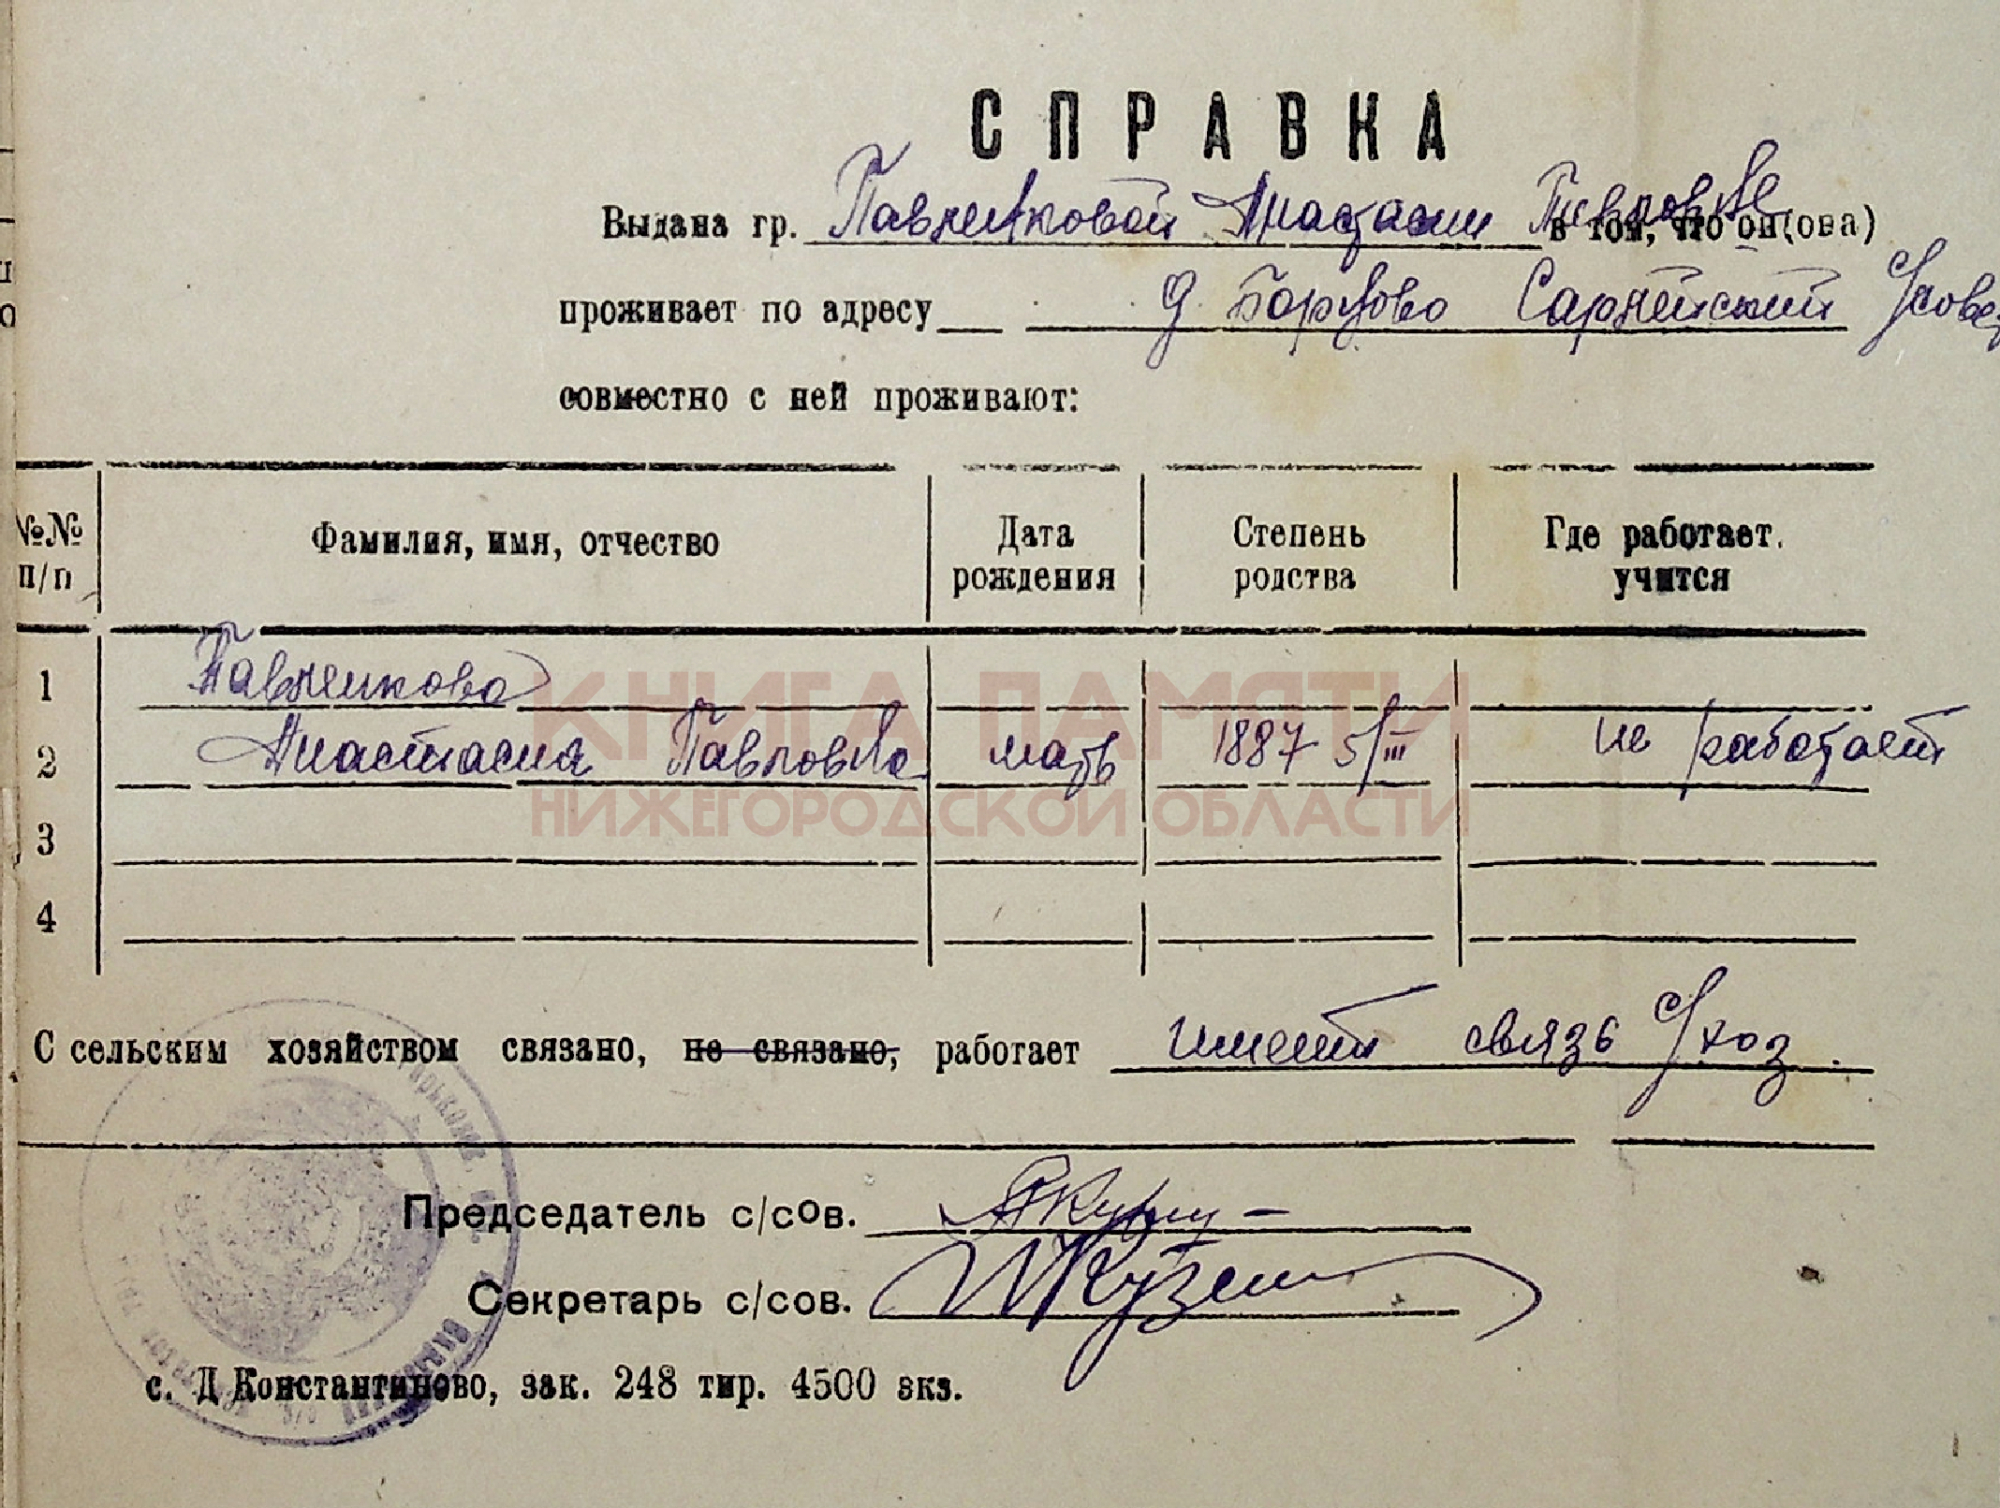 СПРАВКА
Выдана гр. Павленковой Анастасии Павловне в том, что он(ова)
проживает по адресу д. Борцово Сарлейский с/совет
совместно с ней проживают:
№№ п/п Фамилия, имя, отчество Дата рождения Степень родства Где работает, учится
1 Павленкова
2 Анастасия Павловна мать 1887 5/III не работает
3
4
КНИГА ПАМЯТИ
НИЖЕГОРОДСКОЙ ОБЛАСТИ
С сельским хозяйством связано, не связано, работает имеет связь с/хоз.
Председатель с/сов.
Секретарь с/сов.
с. Д Константиново, зак. 248 тир. 4500 экз.